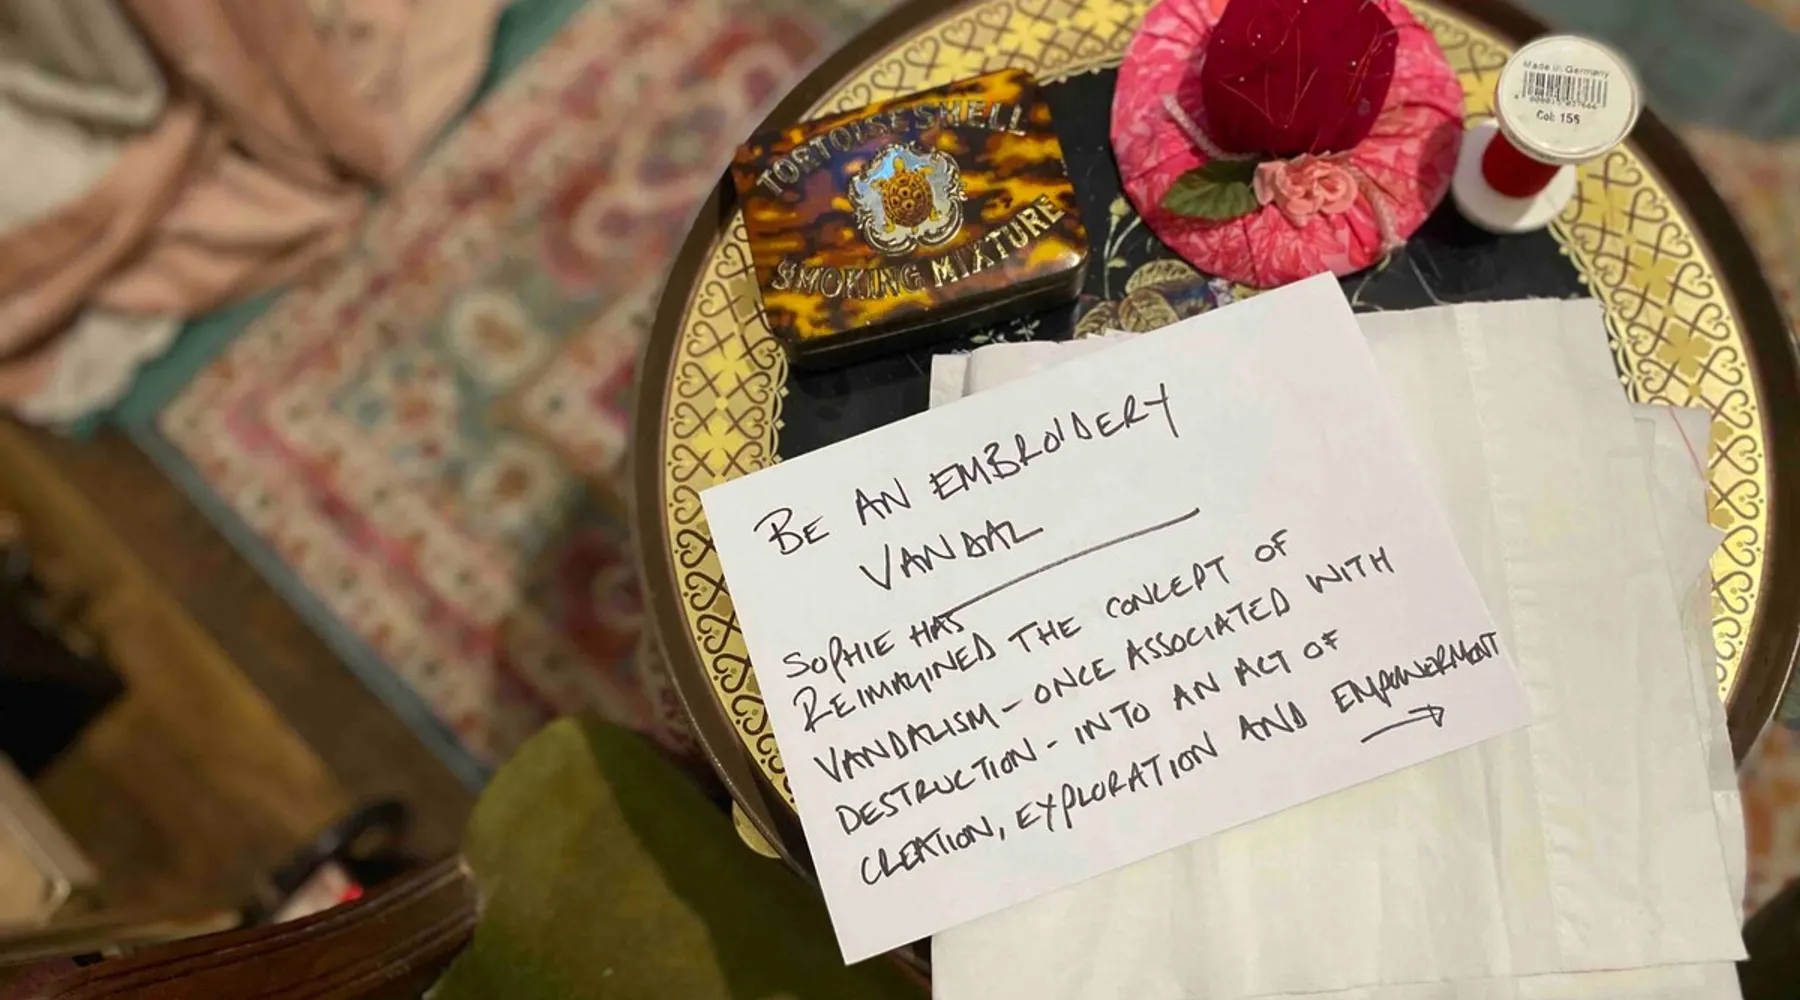 TORTOISESHELL
SMOKING MIXTURE
Made in Germany
Col: 156
BE AN EMBROIDERY
VANDAL
SOPHIE HAS
REIMAGINED THE CONCEPT OF
VANDALISM - ONCE ASSOCIATED WITH
DESTRUCTION - INTO AN ACT OF
CREATION, EXPLORATION AND EMPOWERMENT
→